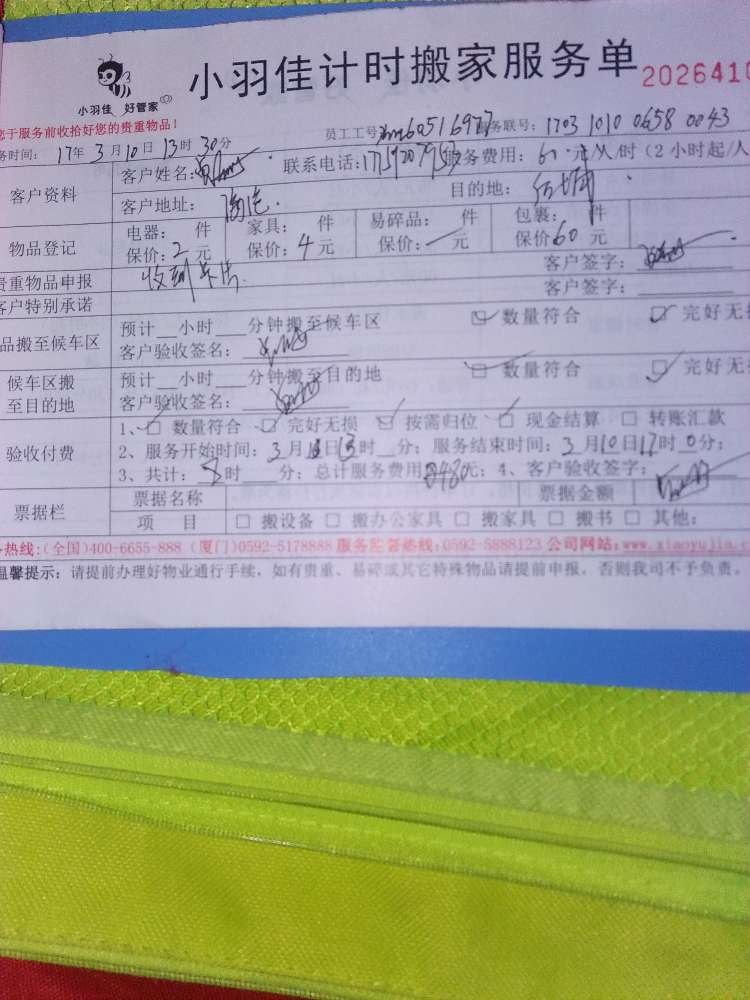 小羽佳计时搬家服务单
2026410
小羽佳 好管家
您于服务前收拾好您的贵重物品!
员工工号 务联号: 1703 1010 0658 0043
务时间: 17年 3月 10日 13时 30分
客户资料
客户姓名:
联系电话: 服务费用: 60 元/人/时(2小时起/人
客户地址: 目的地:
物品登记
电器: 件 家具: 件 易碎品: 件 包裹: 件
保价: 2 元 保价: 4 元 保价: 元 保价 60 元
贵重物品申报
客户签字:
客户特别承诺
客户签字:
品搬至候车区
预计 小时 分钟搬至候车区 数量符合 完好无损
客户验收签名:
候车区搬至目的地
预计 小时 分钟搬至目的地 数量符合 完好无损
客户验收签名:
验收付费
1、数量符合 完好无损 按需归位 现金结算 转账汇款
2、服务开始时间: 3月 日 13时 分; 服务结束时间: 3月10日17时 0分;
3、共计: 8时 分; 总计服务费用 480元; 4、客户验收签字:
票据栏
票据名称 票据金额
项 目 搬设备 搬办公家具 搬家具 搬书 其他:
热线:(全国)400-6655-888 (厦门)0592-5178888 服务监督热线:0592-5888123 公司网站:www.xiaoyujia.c
温馨提示: 请提前办理好物业通行手续,如有贵重、易碎或其它特殊物品请提前申报,否则我司不予负责。